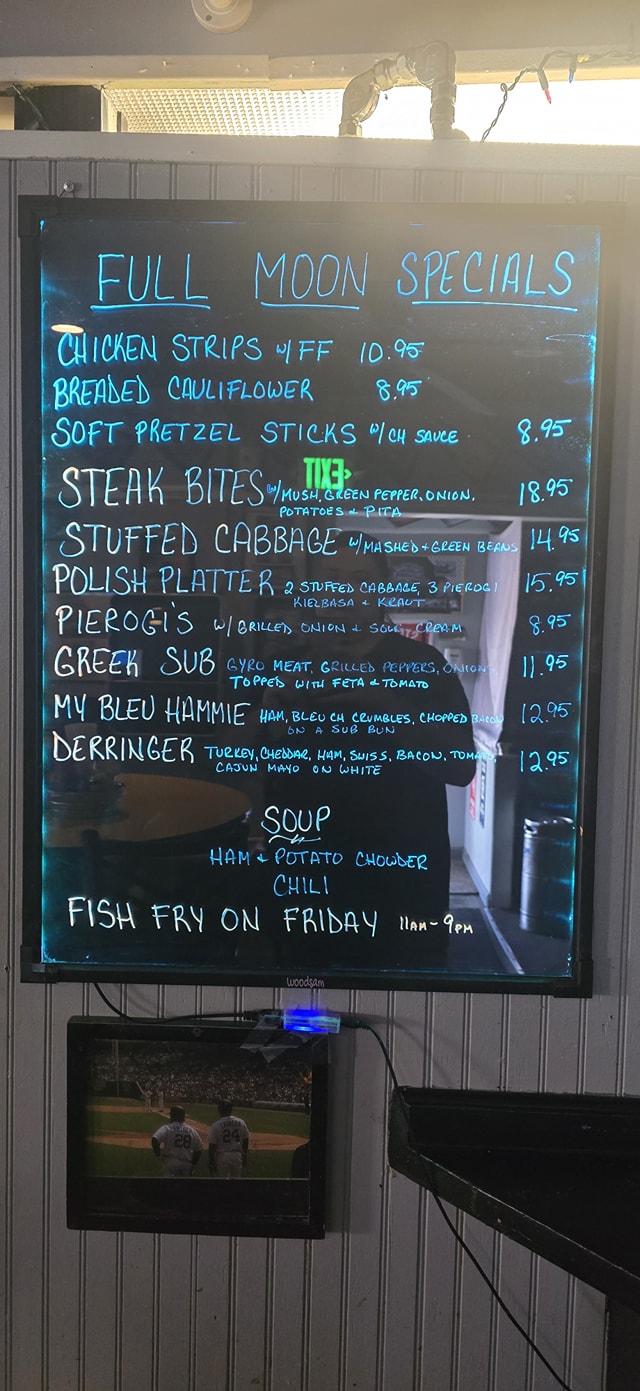 FULL MOON SPECIALS
CHICKEN STRIPS W/ FF 10.95
BREADED CAULIFLOWER 8.95
SOFT PRETZEL STICKS W/ CH SAUCE 8.95
EXIT
STEAK BITES W/ MUSH, GREEN PEPPER, ONION, 18.95
POTATOES + PITA
STUFFED CABBAGE W/ MASHED + GREEN BEANS 14.95
POLISH PLATTER 2 STUFFED CABBAGE, 3 PIEROGI 15.95
KIELBASA + KRAUT
PIEROGI'S W/ GRILLED ONION + SOUR CREAM 8.95
GREEK SUB GYRO MEAT, GRILLED PEPPERS, ONIONS 11.95
TOPPED WITH FETA + TOMATO
MY BLEU HAMMIE HAM, BLEU CH CRUMBLES, CHOPPED BACON 12.95
ON A SUB BUN
DERRINGER TURKEY, CHEDDAR, HAM, SWISS, BACON, TOMATO, 12.95
CAJUN MAYO ON WHITE
SOUP
HAM + POTATO CHOWDER
CHILI
FISH FRY ON FRIDAY 11AM - 9PM
woodsam
28 24